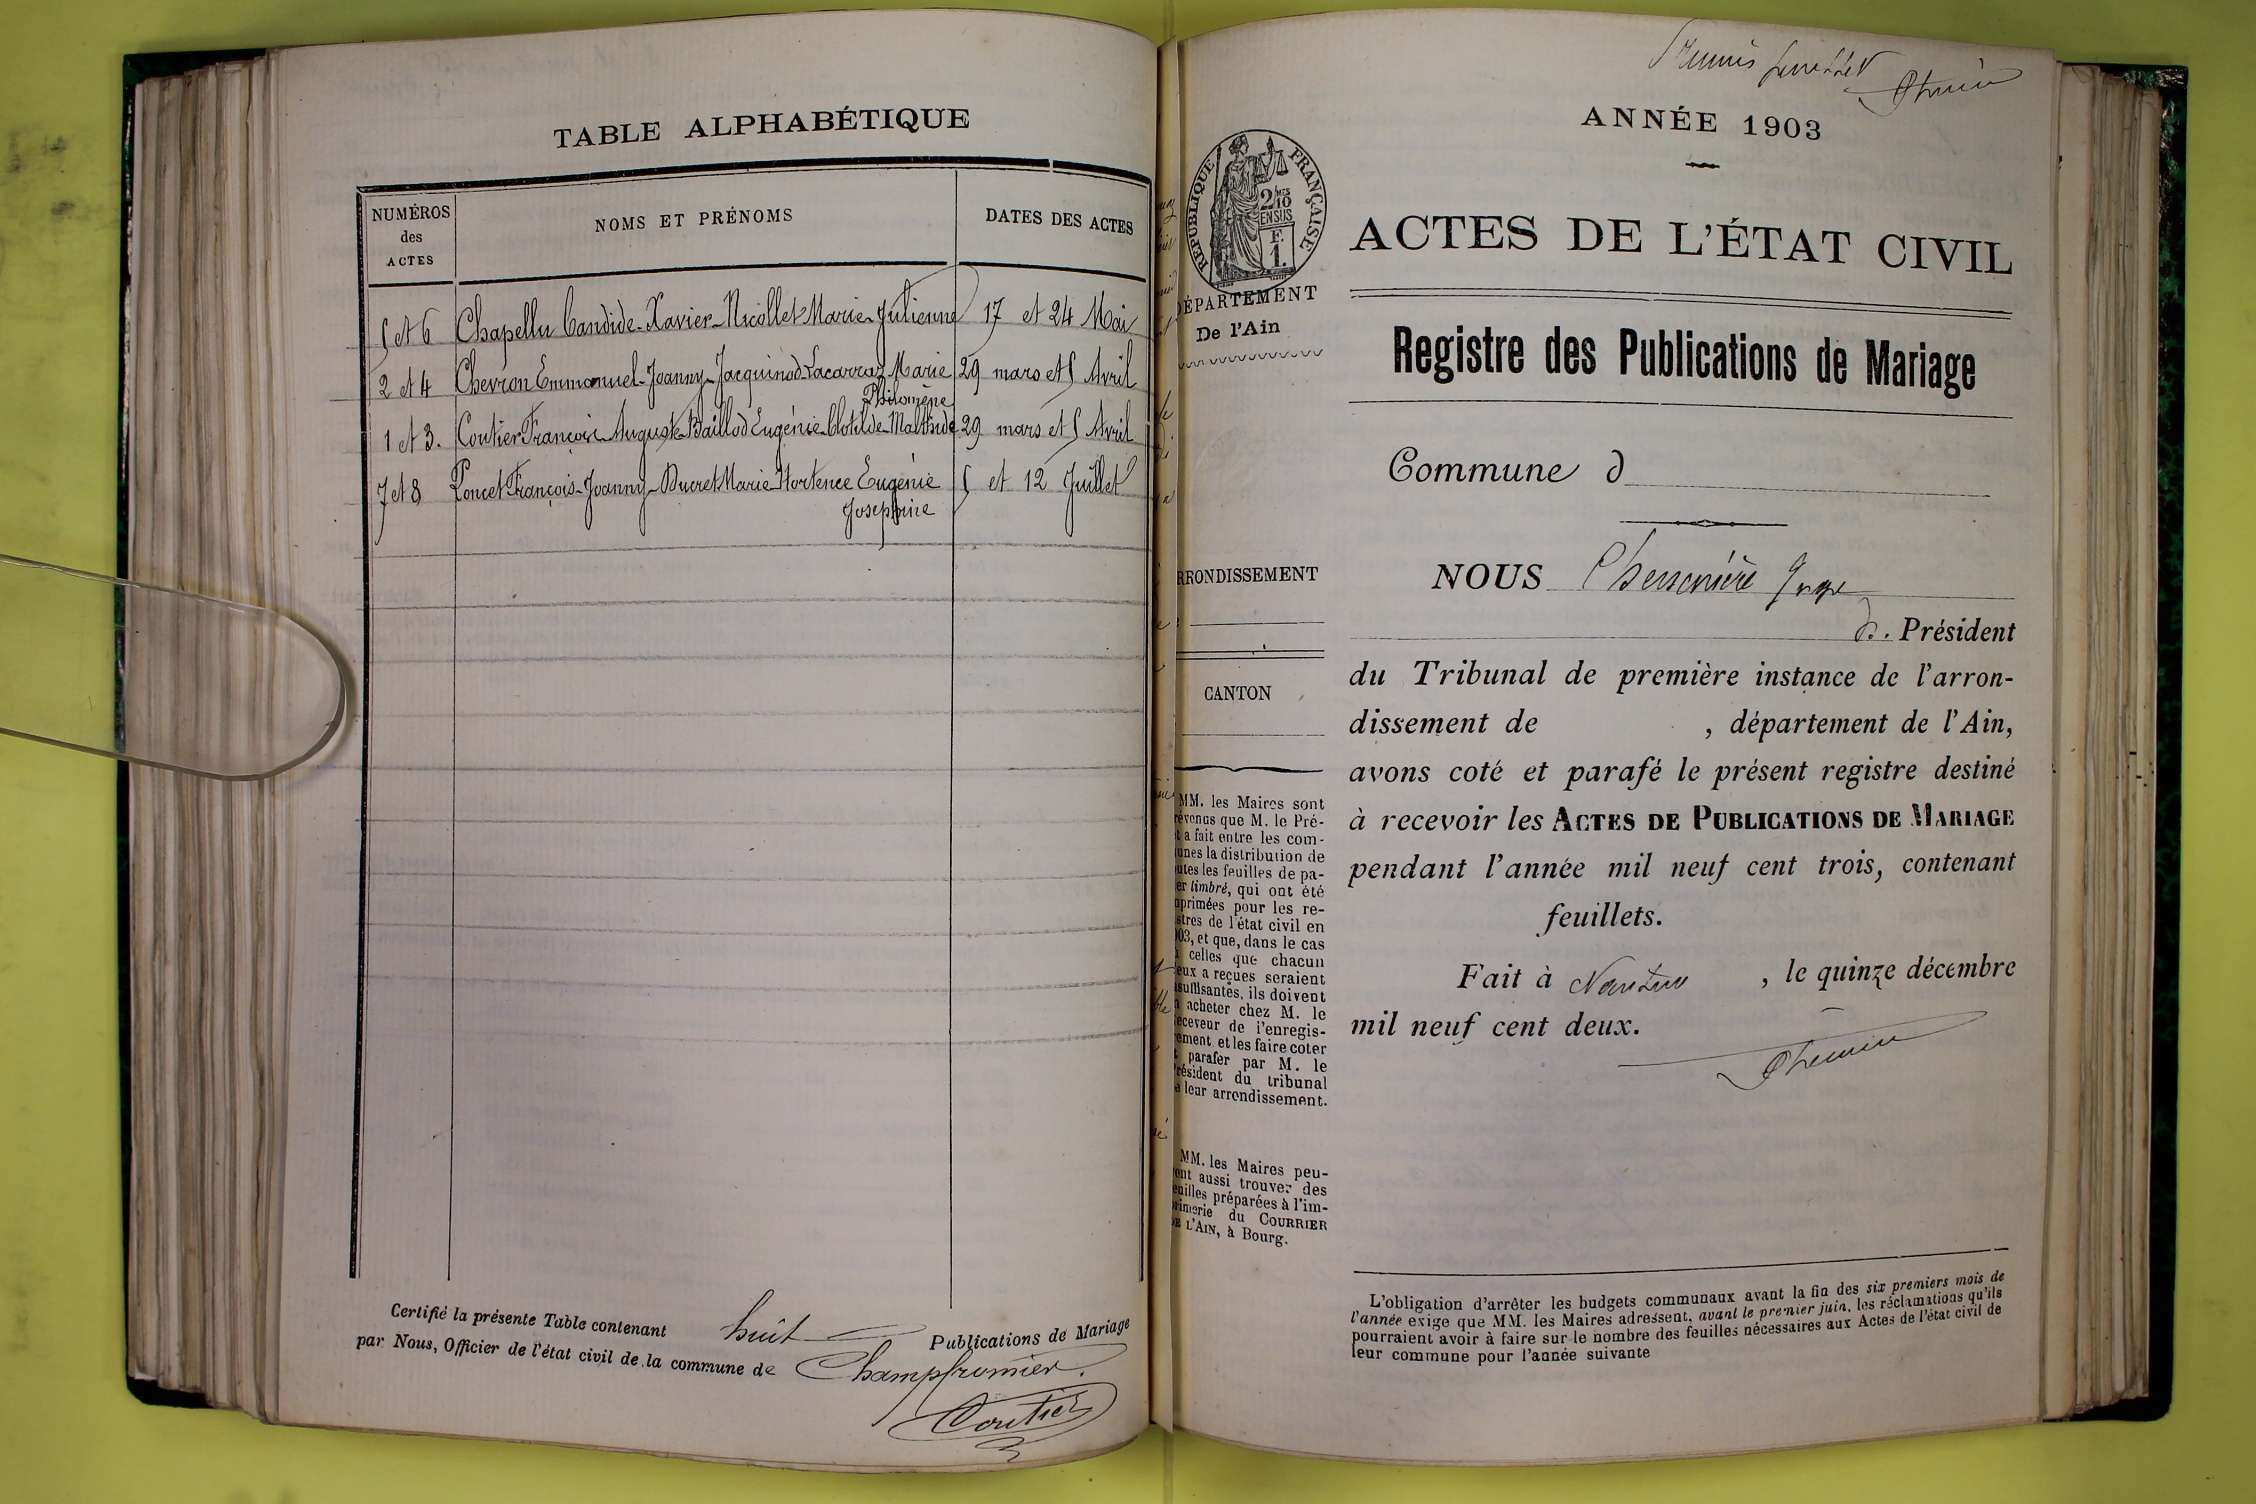 TABLE ALPHABÉTIQUE
NUMÉROS
des
ACTES
NOMS ET PRÉNOMS
DATES DES ACTES
5 et 6 Chapellu Candide-Xavier-Nicollet Marie-Julienne 17 et 24 Mai
2 et 4 Chevron Emmanuel-Joanny-Jacquinod-Lacarraz Marie 29 mars et 5 Avril
Philomène
1 et 3. Coutier François-Auguste-Baillod Eugénie-Clotilde-Malthide 29 mars et 5 Avril
7 et 8 Poncet François-Joanny-Ducret Marie-Hortence Eugénie 5 et 12 Juillet
Josephine
Certifié la présente Table contenant huit Publications de Mariage
par Nous, Officier de l'état civil de la commune de Champfromier.
Coutier
ANNÉE 1903
RÉPUBLIQUE FRANÇAISE
2/10
EN SUS
F.
1.
DÉPARTEMENT
De l'Ain
RRONDISSEMENT
CANTON
MM. les Maires sont
révenus que M. le Pré-
t a fait entre les com-
unes la distribution de
utes les feuilles de pa-
er timbré, qui ont été
primées pour les re-
stres de l'état civil en
03, et que, dans le cas
celles que chacun
eux a reçues seraient
suffisantes, ils doivent
acheter chez M. le
eceveur de l'enregis-
ement et les faire coter
parafer par M. le
résident du tribunal
leur arrondissement.
MM. les Maires peu-
ent aussi trouver des
euilles préparées à l'im-
rimerie du COURRIER
DE L'AIN, à Bourg.
ACTES DE L'ÉTAT CIVIL
Registre des Publications de Mariage
Commune d
NOUS Juge
Président
du Tribunal de première instance de l'arron-
dissement de , département de l'Ain,
avons coté et parafé le présent registre destiné
à recevoir les ACTES DE PUBLICATIONS DE MARIAGE
pendant l'année mil neuf cent trois, contenant
feuillets.
Fait à Nantua , le quinze décembre
mil neuf cent deux.
L'obligation d'arrêter les budgets communaux avant la fin des six premiers mois de
l'année exige que MM. les Maires adressent, avant le premier juin, les réclamations qu'ils
pourraient avoir à faire sur le nombre des feuilles nécessaires aux Actes de l'état civil de
leur commune pour l'année suivante